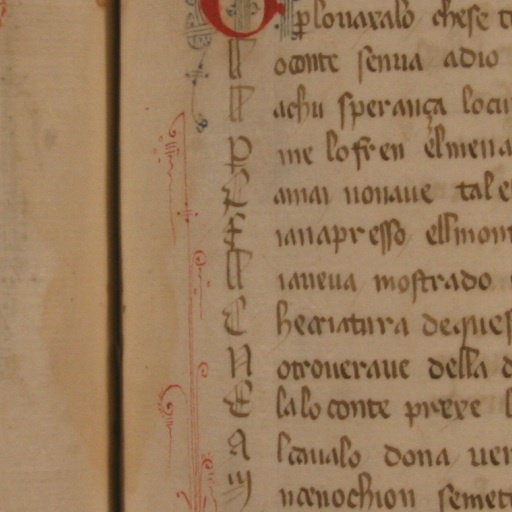 p lo uaxalo chese
ll oconte senua adio
ll achu sperança locu
p me lofren elmena
E amai nonaue tal e
E ianapresso ellmont
ll iaueua mostrado
C hecriatura deques
N otroueraue della d
E lalo conte prexe l
A lcaualo dona uen
M ncenochion semet